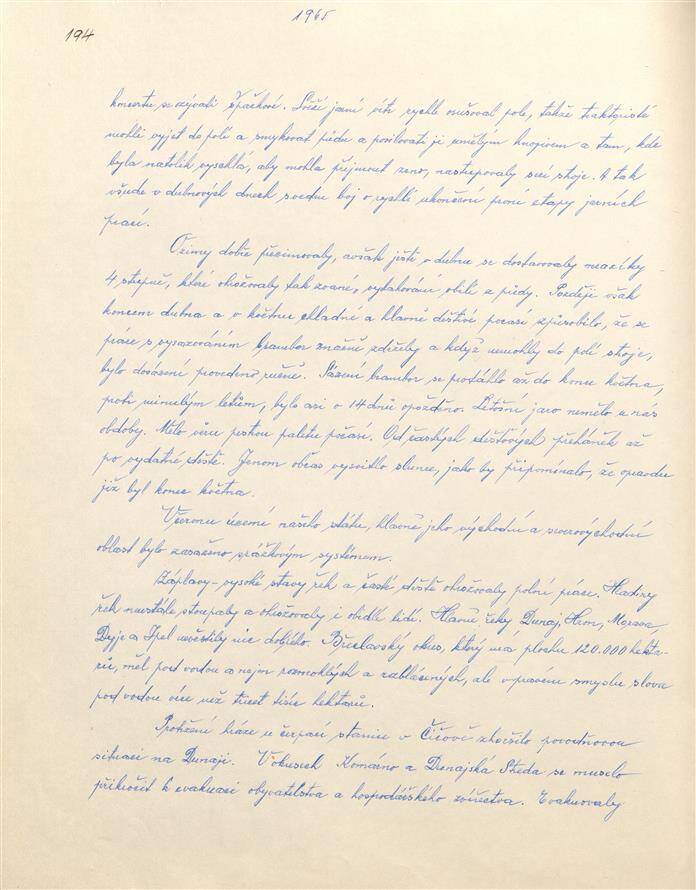 1965
194
koncertu se ozývali špačkové. Svěží jarní vítr rychle osušoval pole, takže traktoristé
mohli vyjet do polí a smykovat půdu a posilovati ji umělým hnojivem a tam, kde
byla natolik vyschlá, aby mohla přijmout zrno, nastupovaly secí stroje. A tak
všude v dubnových dnech sveden boj o rychlé ukončení první etapy jarních
prací.
Ozimy dobře přezimovaly, avšak ještě v dubnu se dostavovaly mrazíky
4 stupně, které ohrožovaly tak zvané, vytahování obilí z půdy. Později však
koncem dubna a v květnu chladné a hlavně deštivé počasí způsobilo, že se
práce s vysazováním brambor značně zdržely a když nemohly do polí stroje,
bylo dosázení provedeno ručně. Sázení brambor se protáhlo až do konce května,
proti minulým létům, bylo asi o 14 dnů opožděno. Letošní jaro nemělo u nás
obdoby. Mělo věru pestrou paletu počasí. Od častých dešťových přeháněk až
po vydatné deště. Jenom občas vysvitlo slunce, jako by připomínalo, že opravdu
již byl konec května.
Včeronu území našeho státu, hlavně jeho východní a severovýchodní
oblast bylo zasaženo srážkovým systémem.
Záplavy - vysoké stavy řek a časté deště ohrožovaly polní práce. Hladiny
řek neustále stoupaly a ohrožovaly i obidlí lidí. Hlavně řeky Dunaj, Hron, Morava
Dyje a Ipel nevěštily nic dobrého. Břeclavský okres, který má plochu 120.000 hekta-
rů, měl pod vodou a nejen rozmoklých a zablácených, ale v pravém smyslu slova
pod vodou více než třicet tisíc hektarů.
Protržení hráze u čerpací stanice v Číčově zhoršilo povodňovou
situaci na Dunaji. V okresech Komárno a Dunajská Streda se muselo
přikročit k evakuaci obyvatelstva a hospodářského zvířectva. Evakuovaly